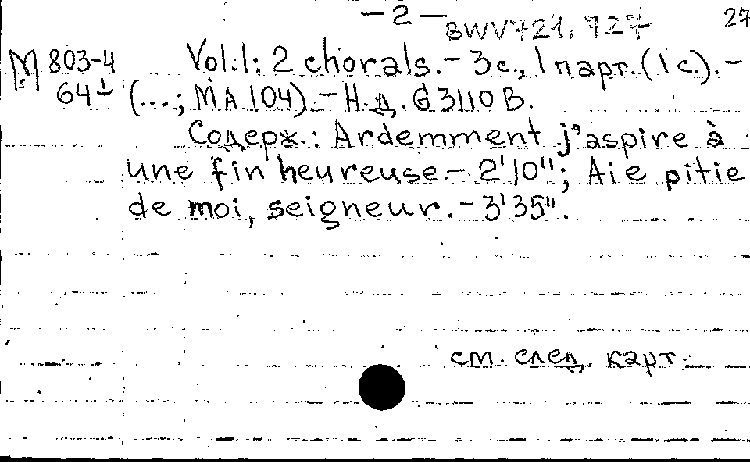 – 2 –
BWV 721, 727 27
М 803-4 Vol.1: 2 chorals. – 3с., 1 парт. (1 с.). –
64 (...; MA 104). – Н.д. G 3110 B.
Содерж.: Ardemment j'aspire à
une fin heureuse. – 2'10"; Aie pitie
de moi, seigneur. – 3'35".
см. след. карт.